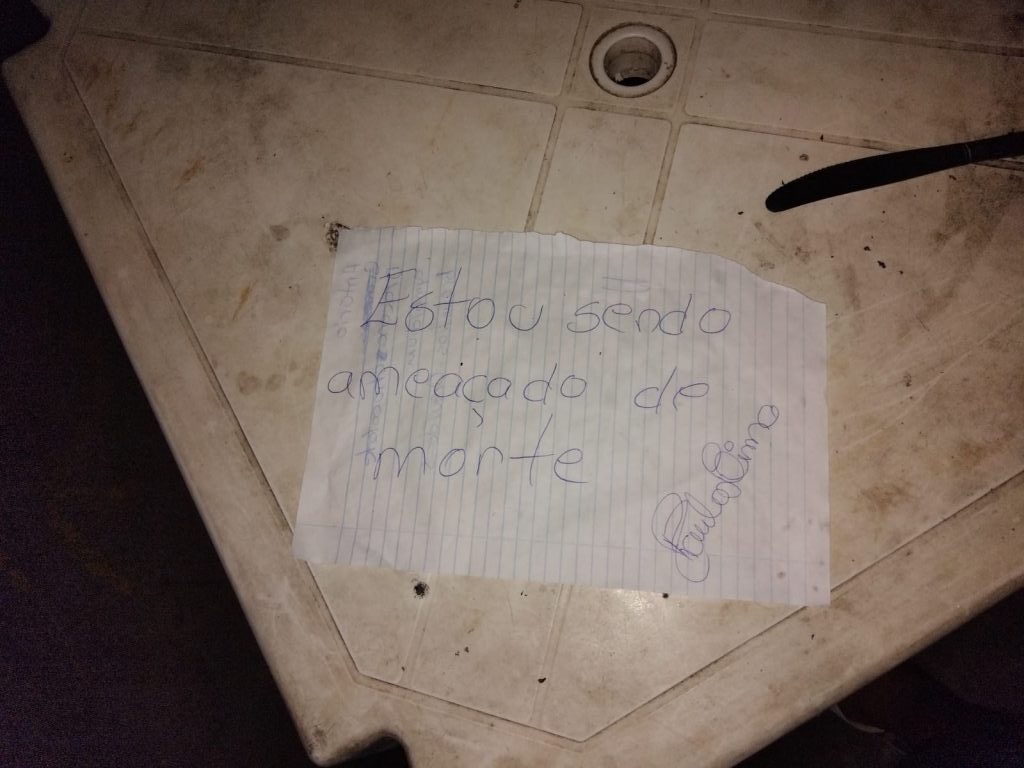 Estou sendo
ameaçado de
morte
Paulo Lima